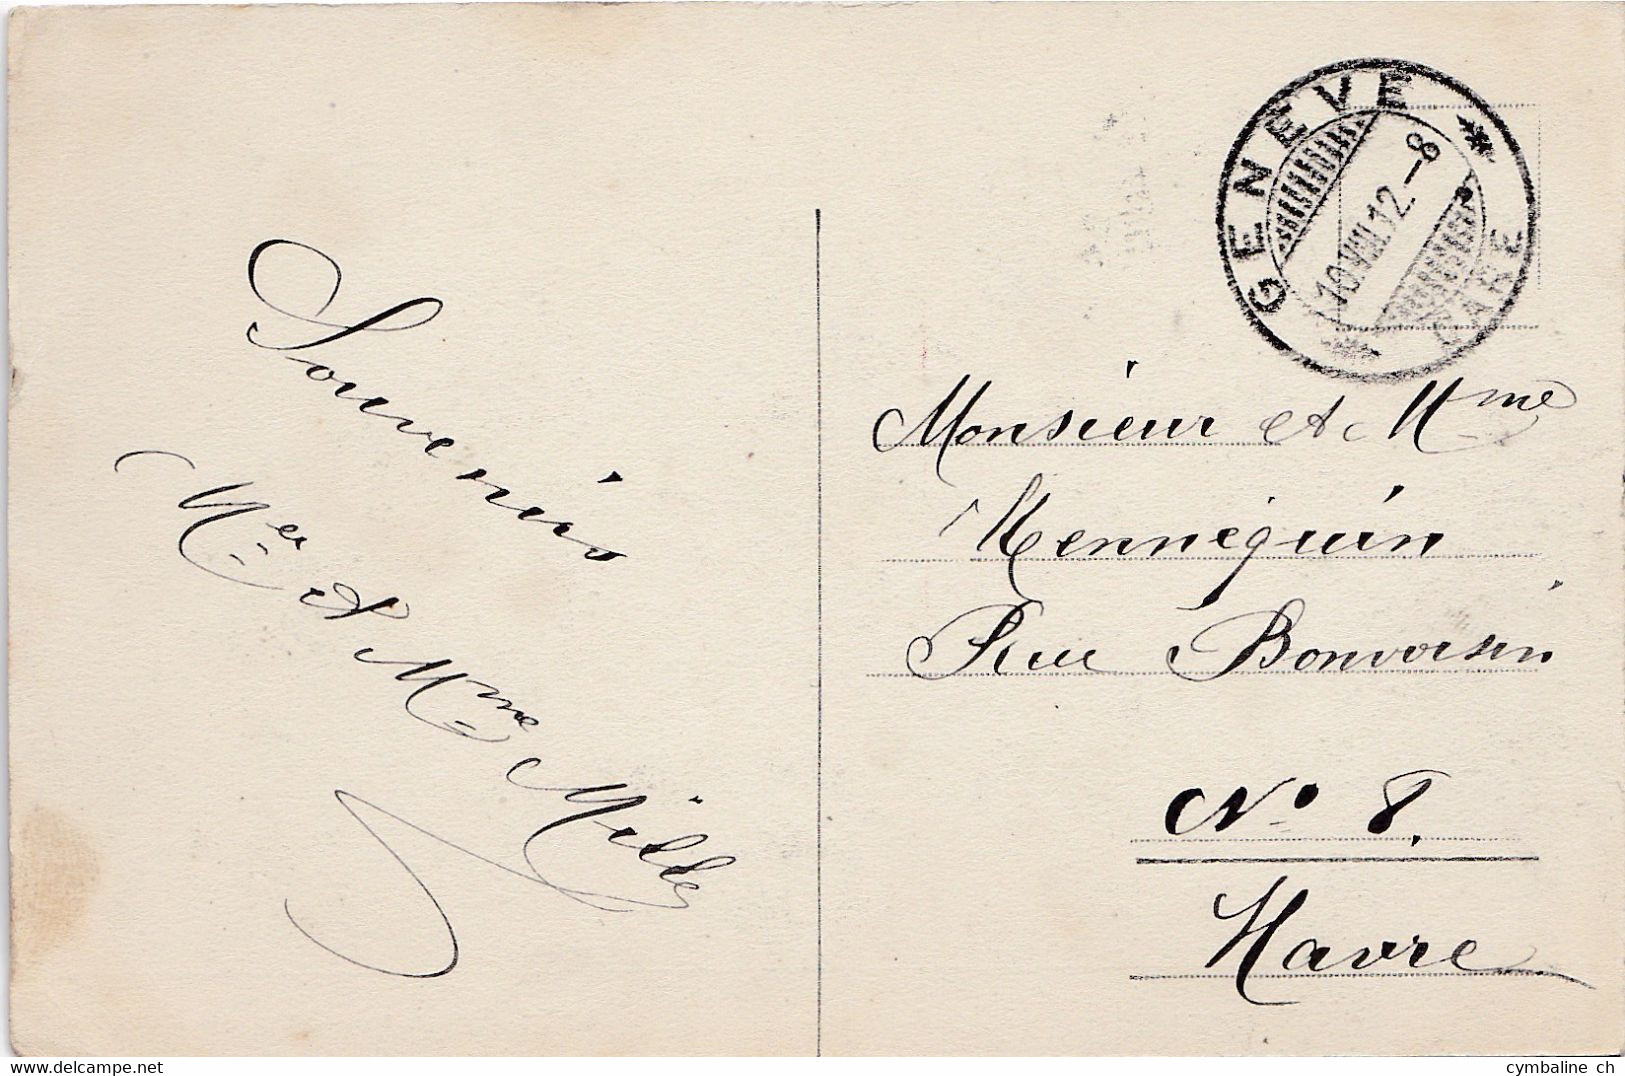 Souvenirs
Mer et Mme
Mille
GENEVE
GARE
10.VIII.12.-8
Monsieur et Mme
Hennequin
Rue Bonvoisin
No 8.
Havre
delcampe.net
cymbaline ch